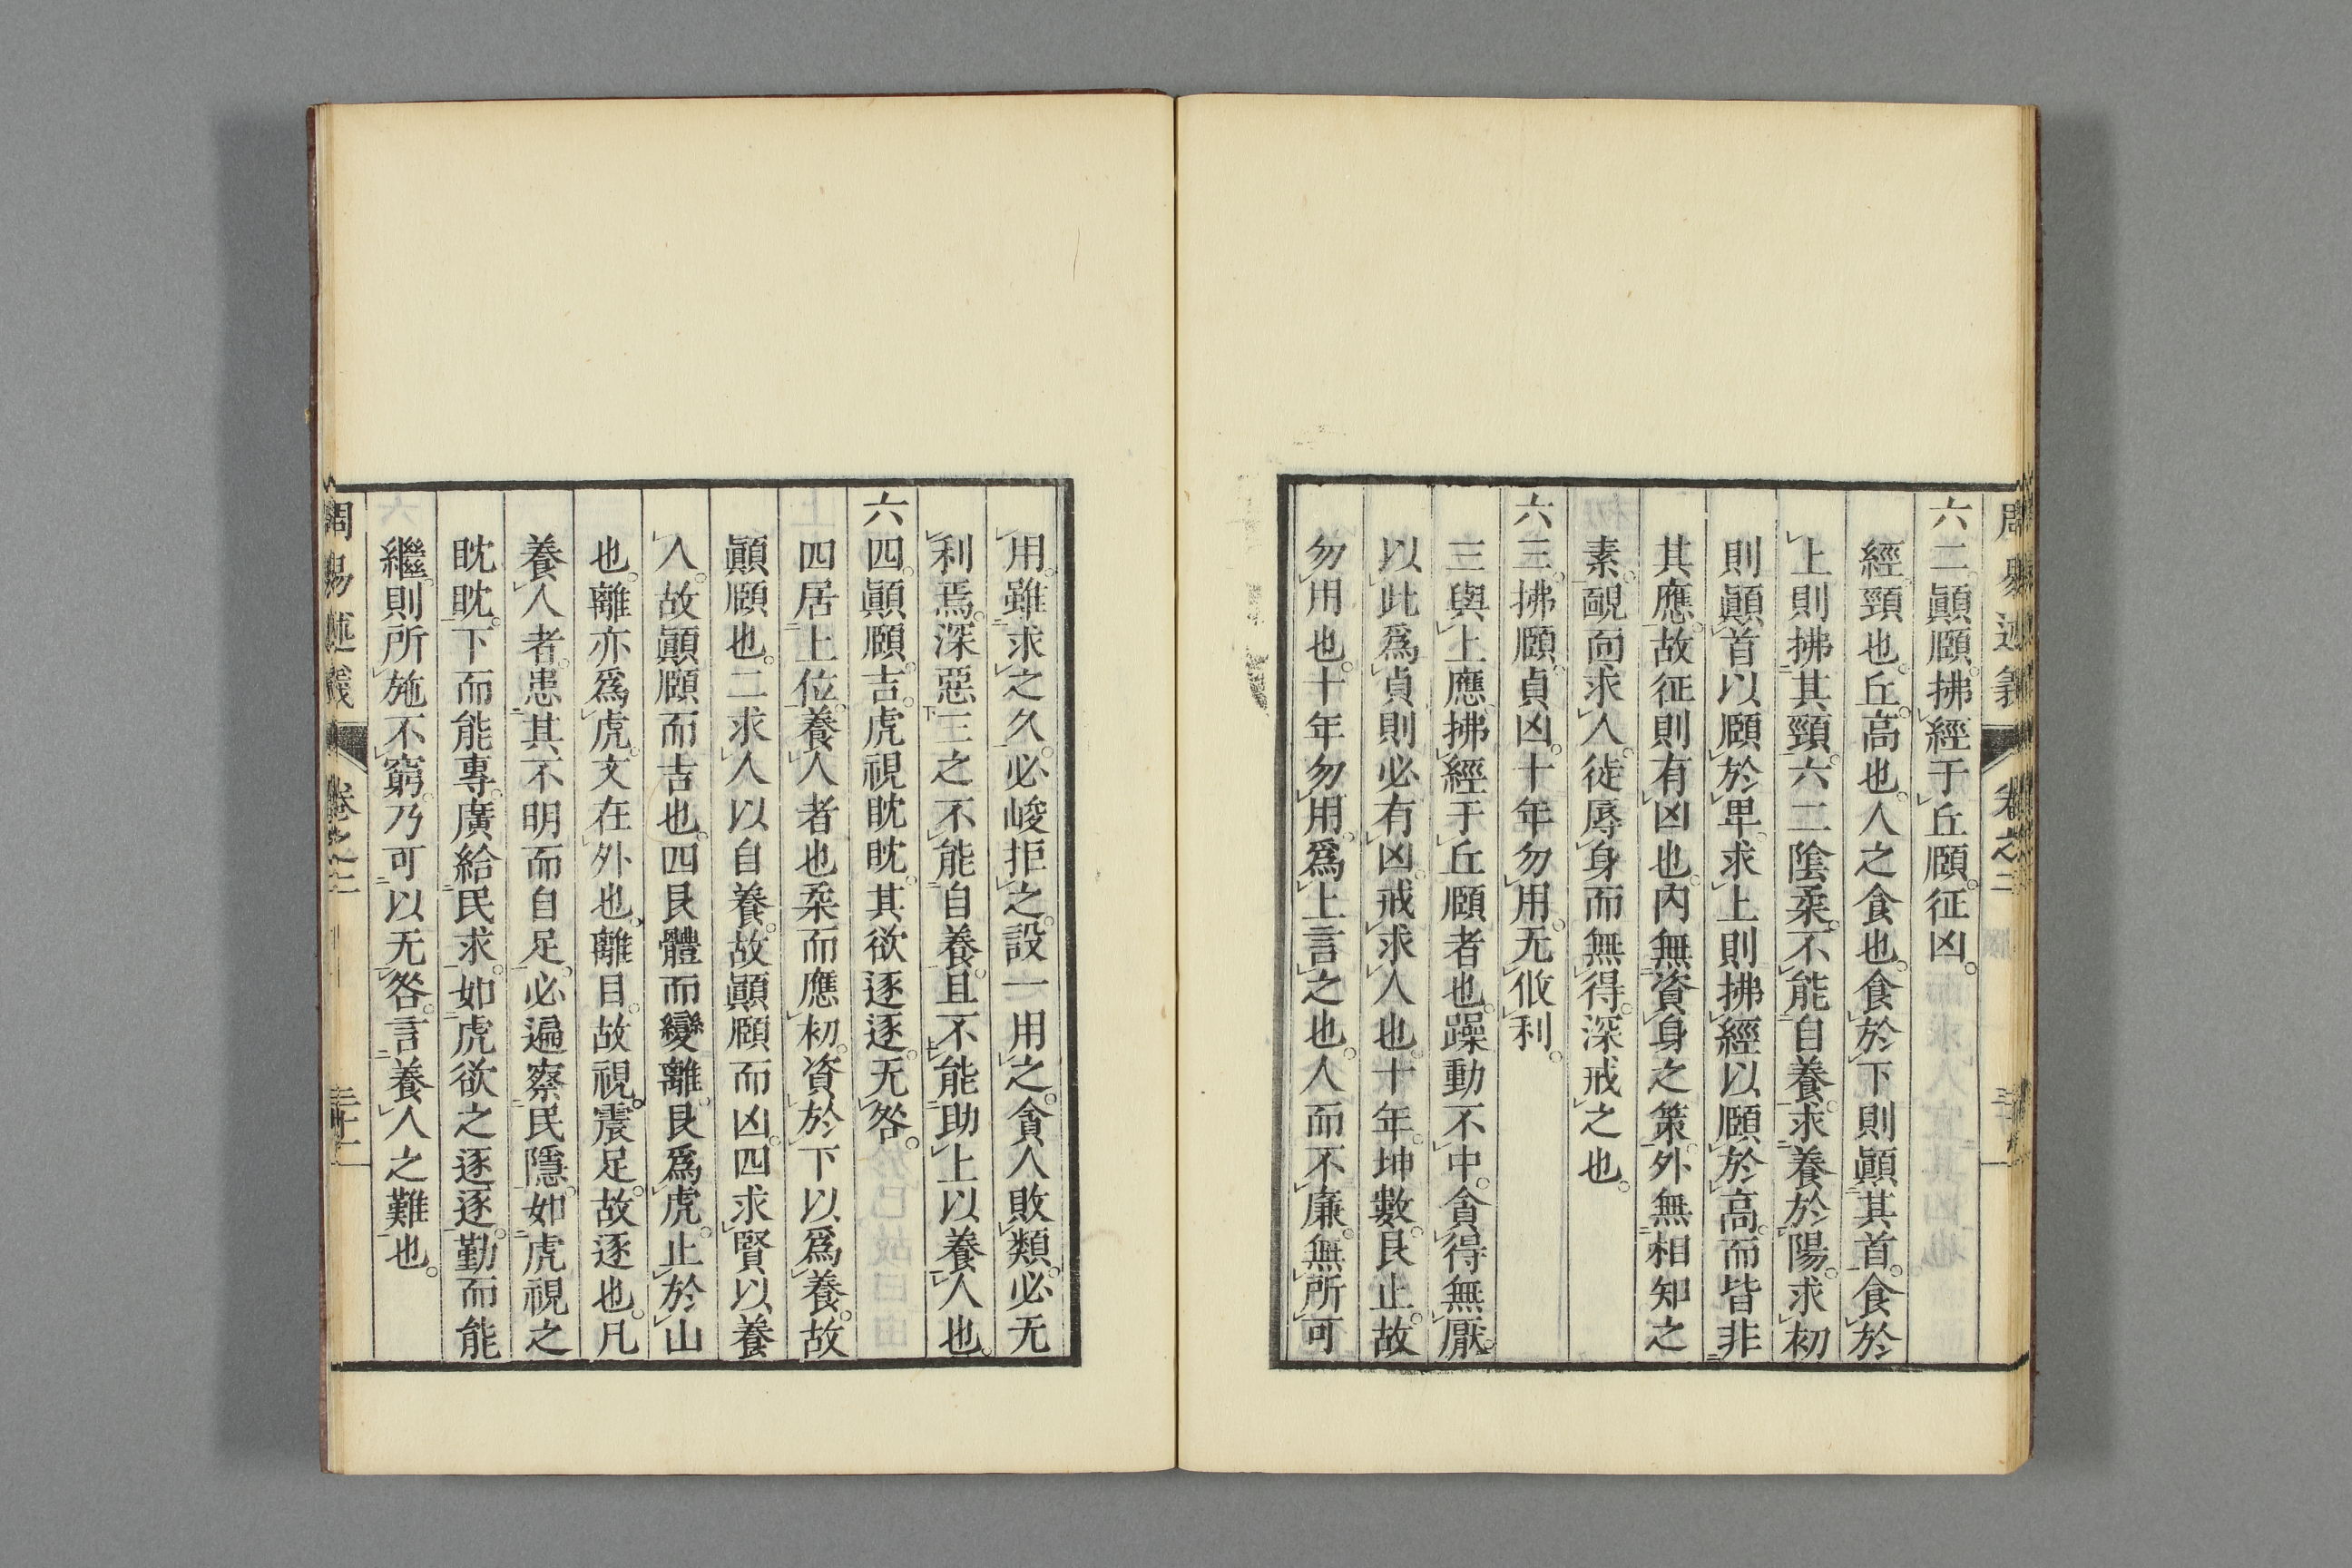 六二。顚頤。拂經于丘頤。征凶。
經。頸也。丘。高也。人之食也。食於下則顚其首。食於
上則拂其頸。六二陰柔。不能自養。求養於陽。求初
則顚首以頤於卑。求上則拂經以頤於高。而皆非
其應。故征則有凶也。內無資身之策。外無相知之
素。靦面求人。徒辱身而無得。深戒之也。
六三。拂頤。貞凶。十年勿用。无攸利。
三與上應。拂經于丘頤者也。躁動不中。貪得無厭。
以此爲貞則必有凶。戒求人也。十年。坤數。艮止。故
勿用也。十年勿用。爲上言之也。人而不廉。無所可
用。雖求之久。必峻拒之。設一用之。貪人敗類。必无
利焉。深惡三之不能自養。且不能助上以養人也。
六四。顚頤。吉。虎視眈眈。其欲逐逐。无咎。
四居上位。養人者也柔而應初。資於下以爲養。故
顚頤也。二求人以自養。故顚頤而凶。四求賢以養
人。故顚頤而吉也。四艮體而變離。艮爲虎。止於山
也。離亦爲虎。文在外也。離目。故視。震足。故逐也。凡
養人者。患其不明而自足。必遍察民隱。如虎視之
眈眈。下而能專。廣給民求。如虎欲之逐逐。勤而能
繼。則所施不窮。乃可以无咎。言養人之難也。
周易述義 卷之二